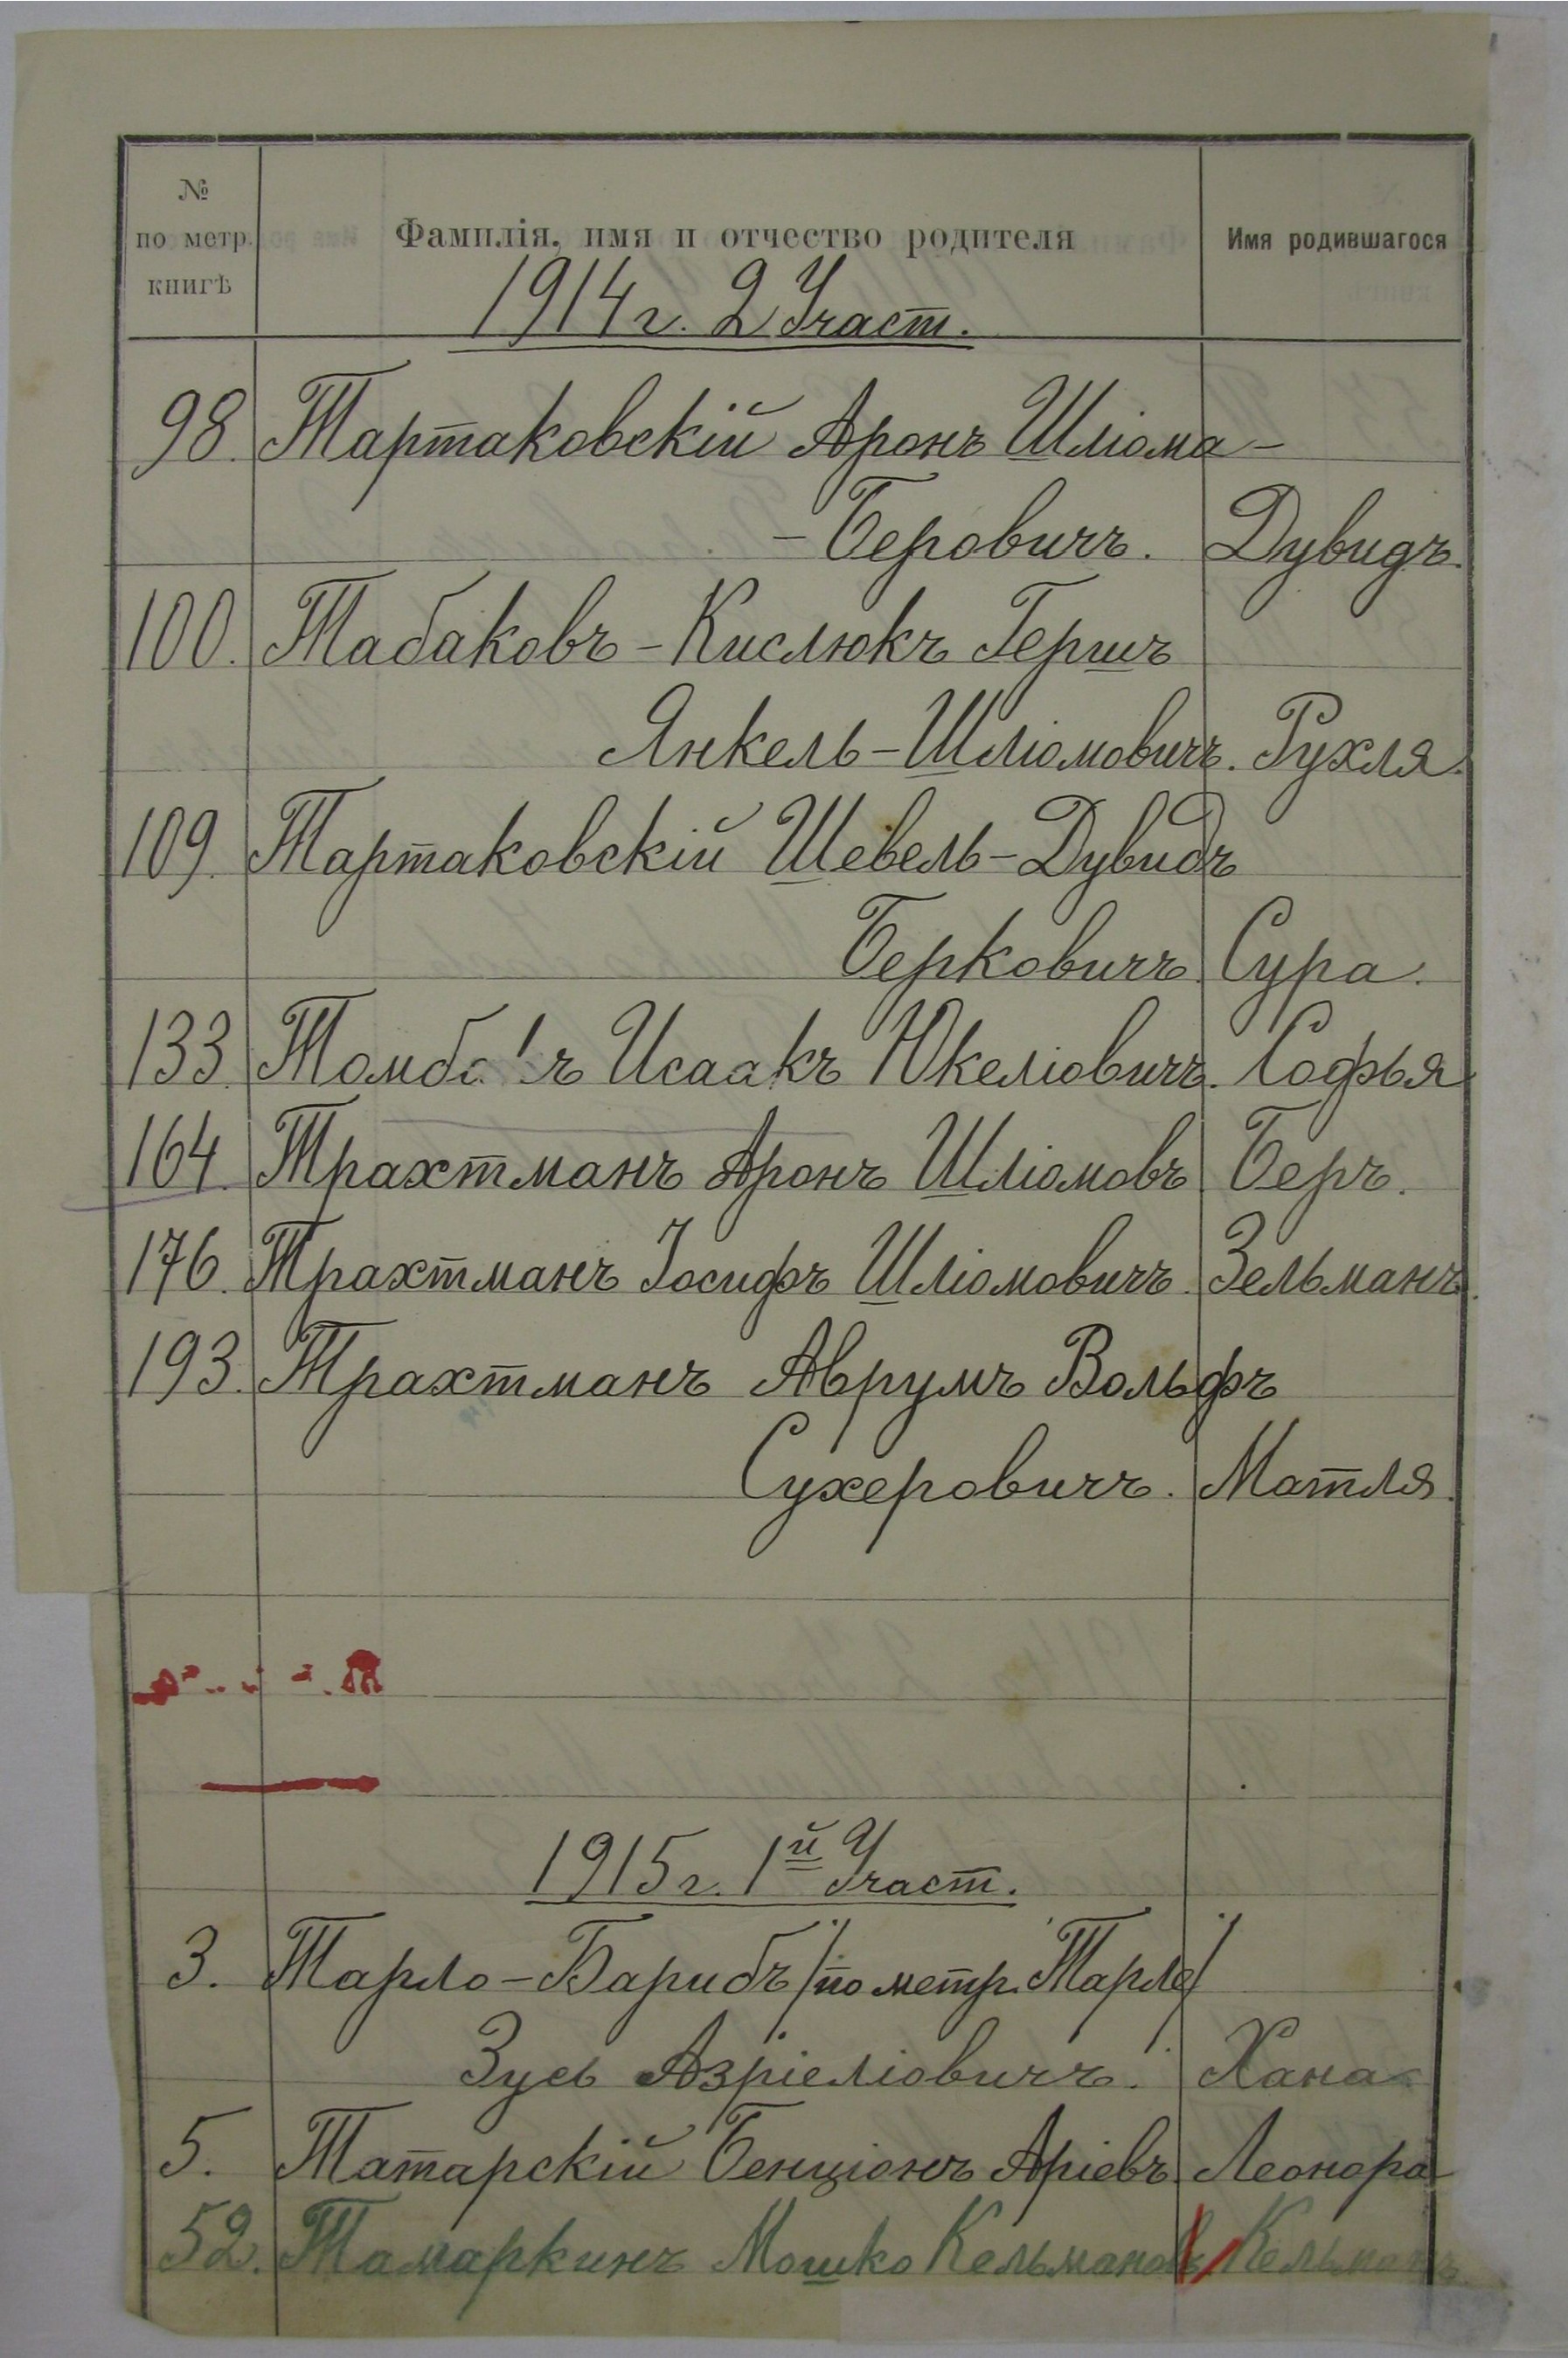 № по метр. книгѣ
Фамилія, имя и отчество родителя
Имя родившагося
1914 г. 2 Участ.
98. Тартаковскій Аронъ Шліома-
-Беровичъ. Дувидъ.
100. Табаковъ-Кислюкъ Гершъ
Янкель-Шліомовичъ. Рухля.
109. Тартаковскій Шевель-Дувидъ
Берковичъ. Сура.
133. Исаакъ Юкеліовичъ. Софья
164. Трахтманъ Аронъ Шліомовъ Беръ.
176. Трахтманъ Іосифъ Шліомовичъ. Зельманъ.
193. Трахтманъ Аврумъ Вольфъ
Сухеровичъ. Матля.
1915 г. 1й Участ.
3. Тарло-Барибъ /по метр. Тарле/
Зусь Азріеліовичъ. Хана
5. Татарскій Бенціонъ Аріевъ. Леонора
52. Тамаркинъ Мошко Кельмановъ Кельманъ